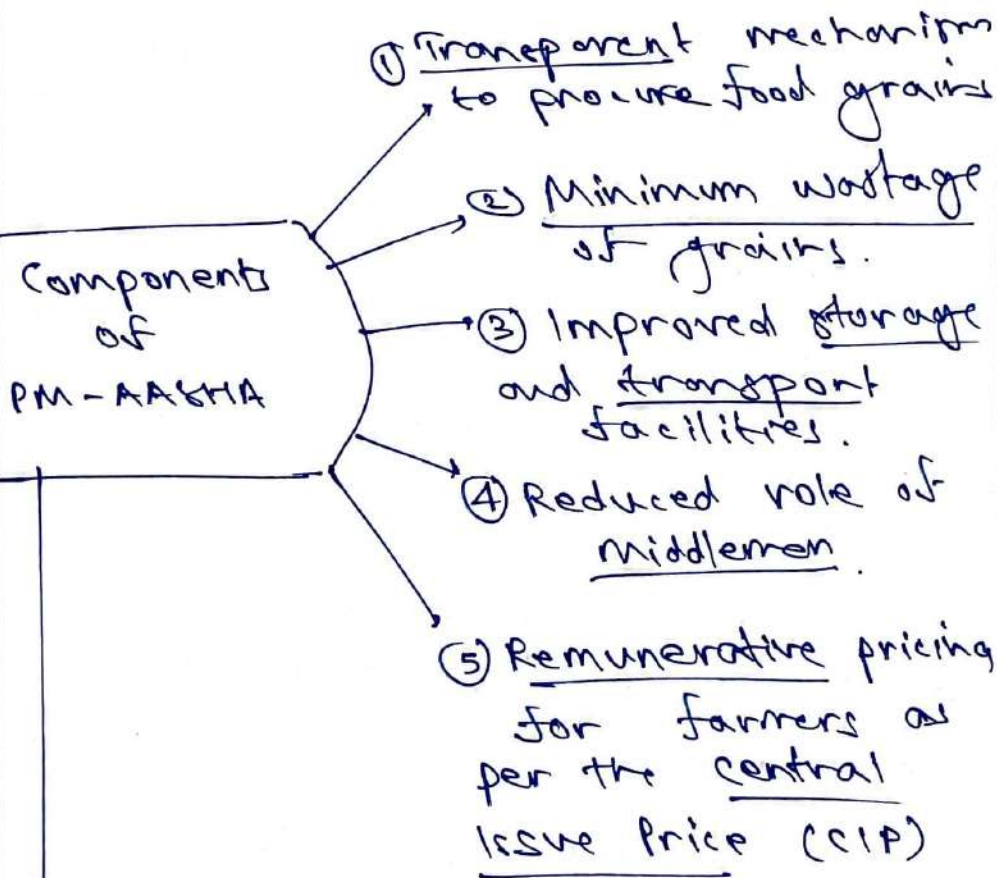 Components
of
PM-AASHA
① Transparent mechanism
to procure food grains
② Minimum wastage
of grains.
③ Improved storage
and transport
facilities.
④ Reduced role of
Middlemen.
⑤ Remunerative pricing
for farmers as
per the central
Issue Price (CIP)